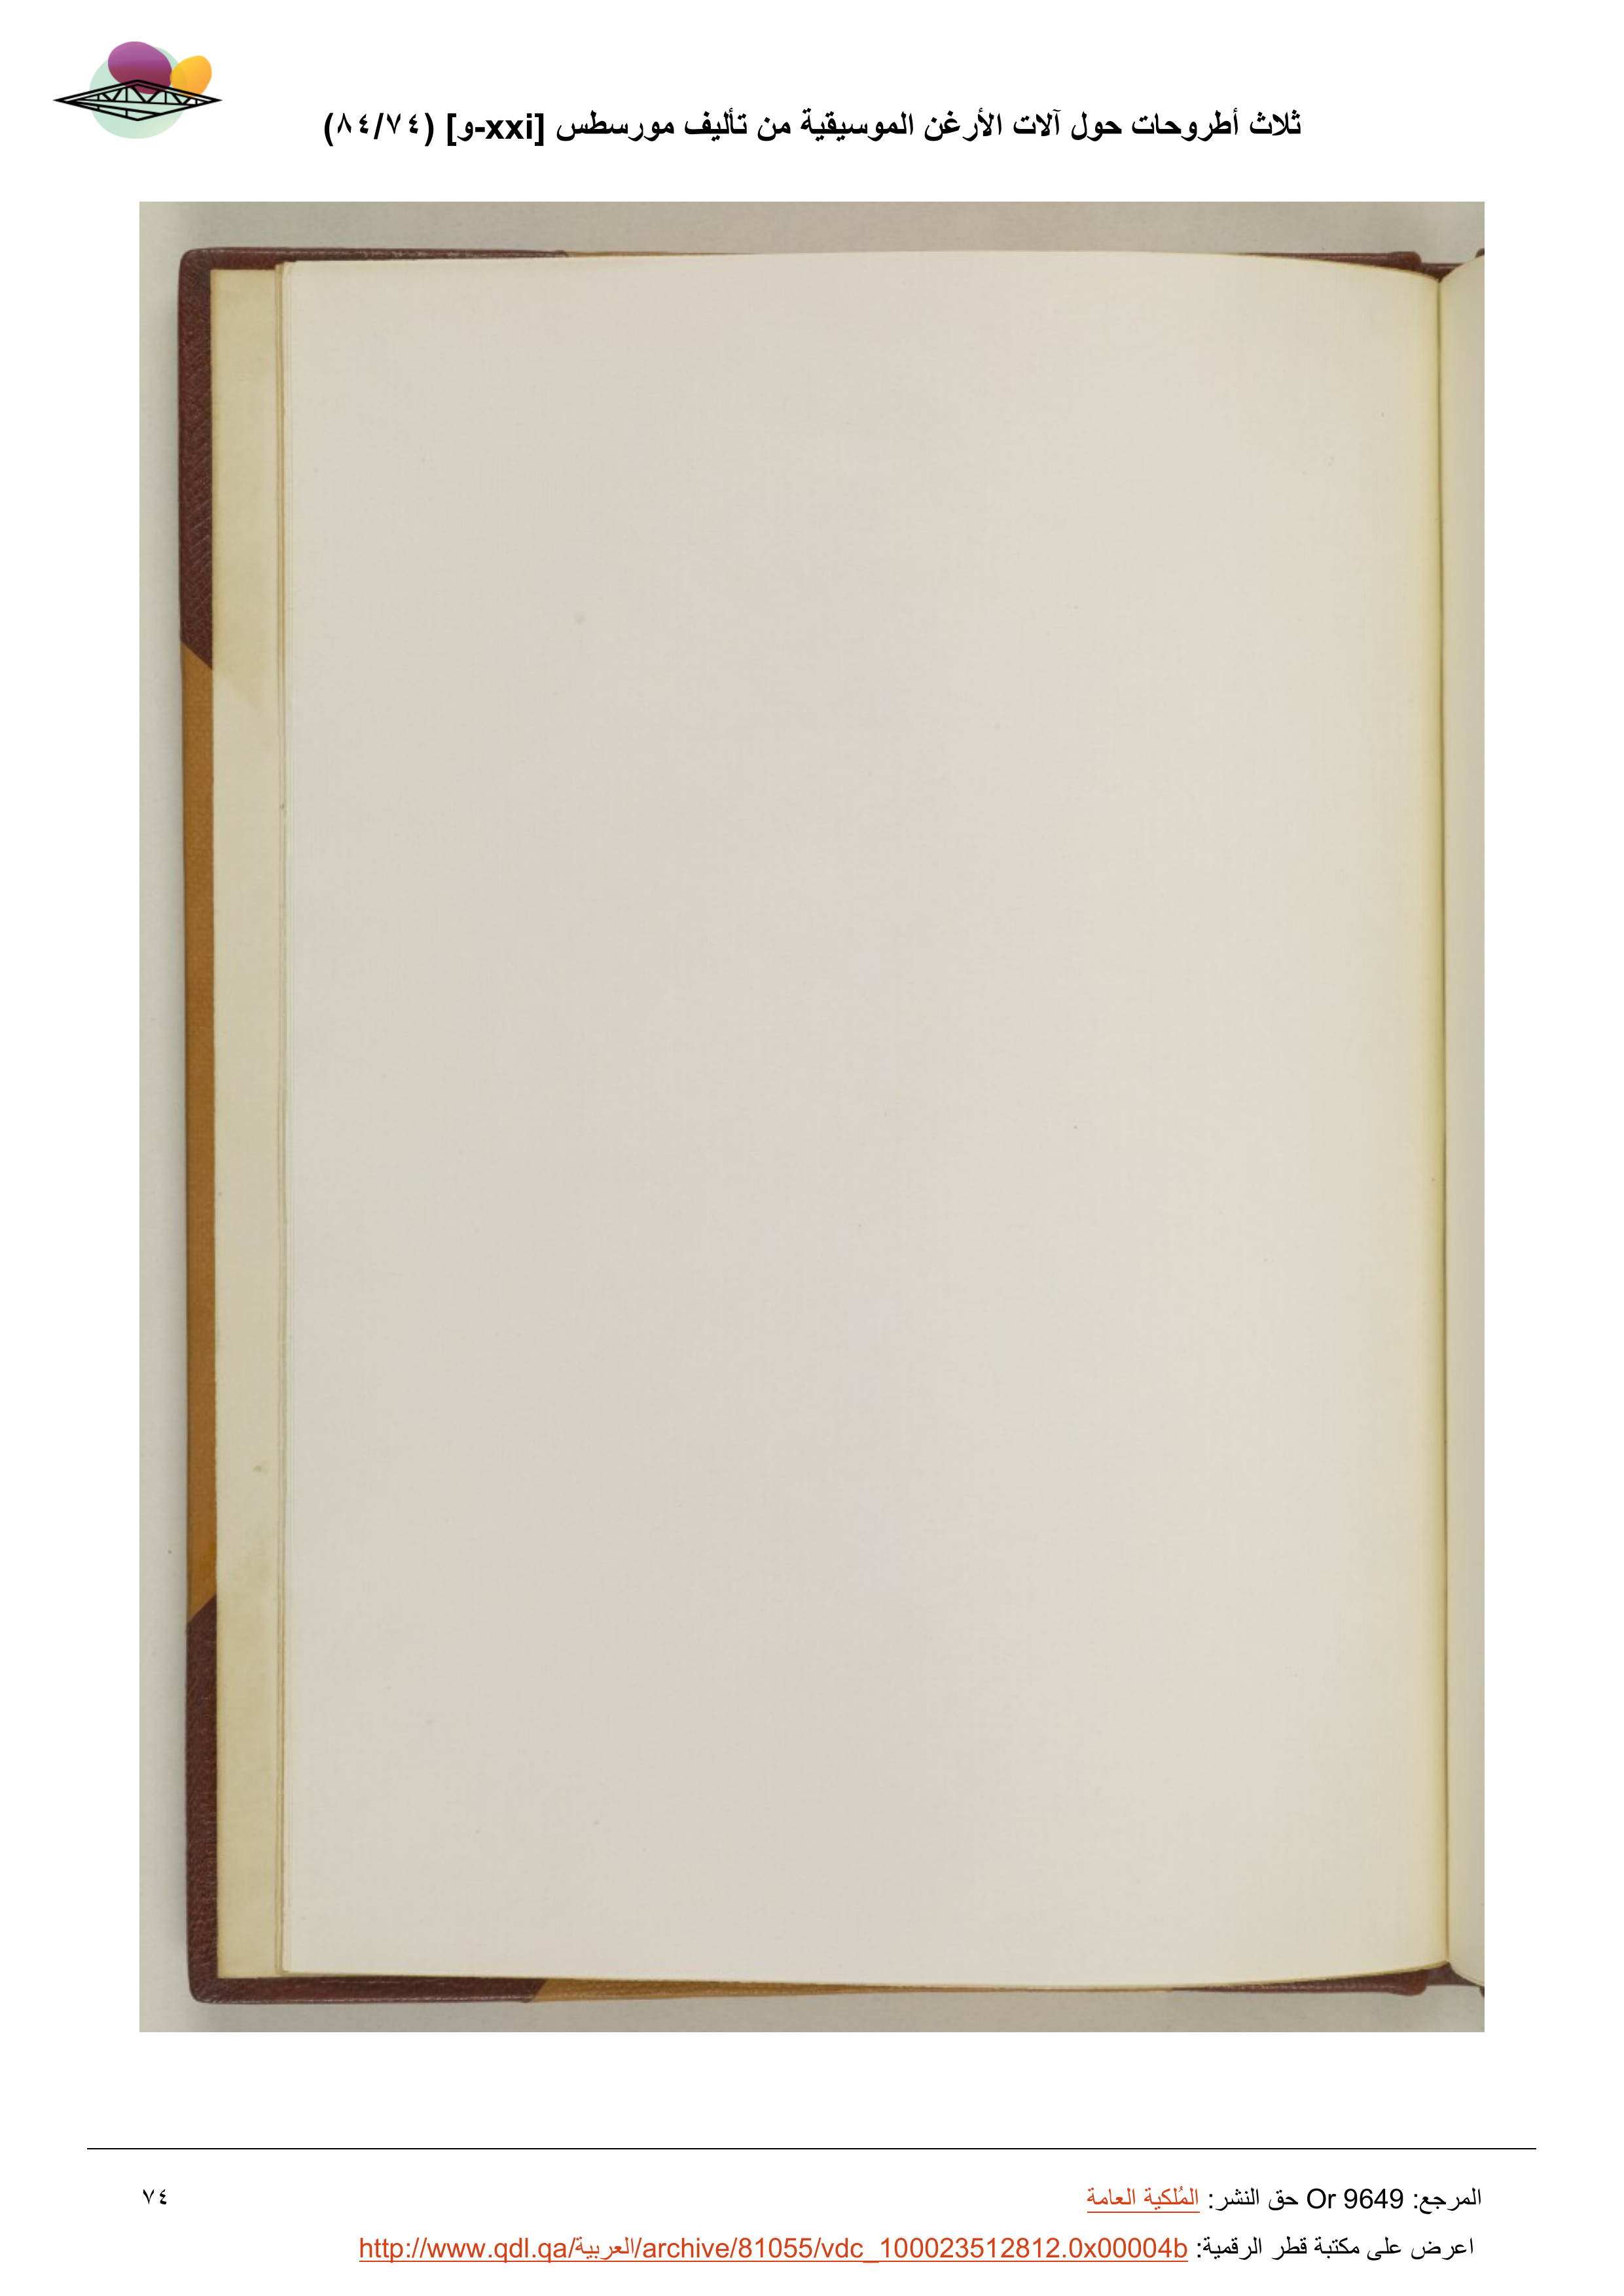 ثلاث أطروحات حول آلات الأرغن الموسيقية من تأليف مورسطس [xxi-و] (٧٤/٨٤)
المرجع: Or 9649 حق النشر: المُلكية العامة
٧٤
اعرض على مكتبة قطر الرقمية: http://www.qdl.qa/العربية/archive/81055/vdc_100023512812.0x00004b